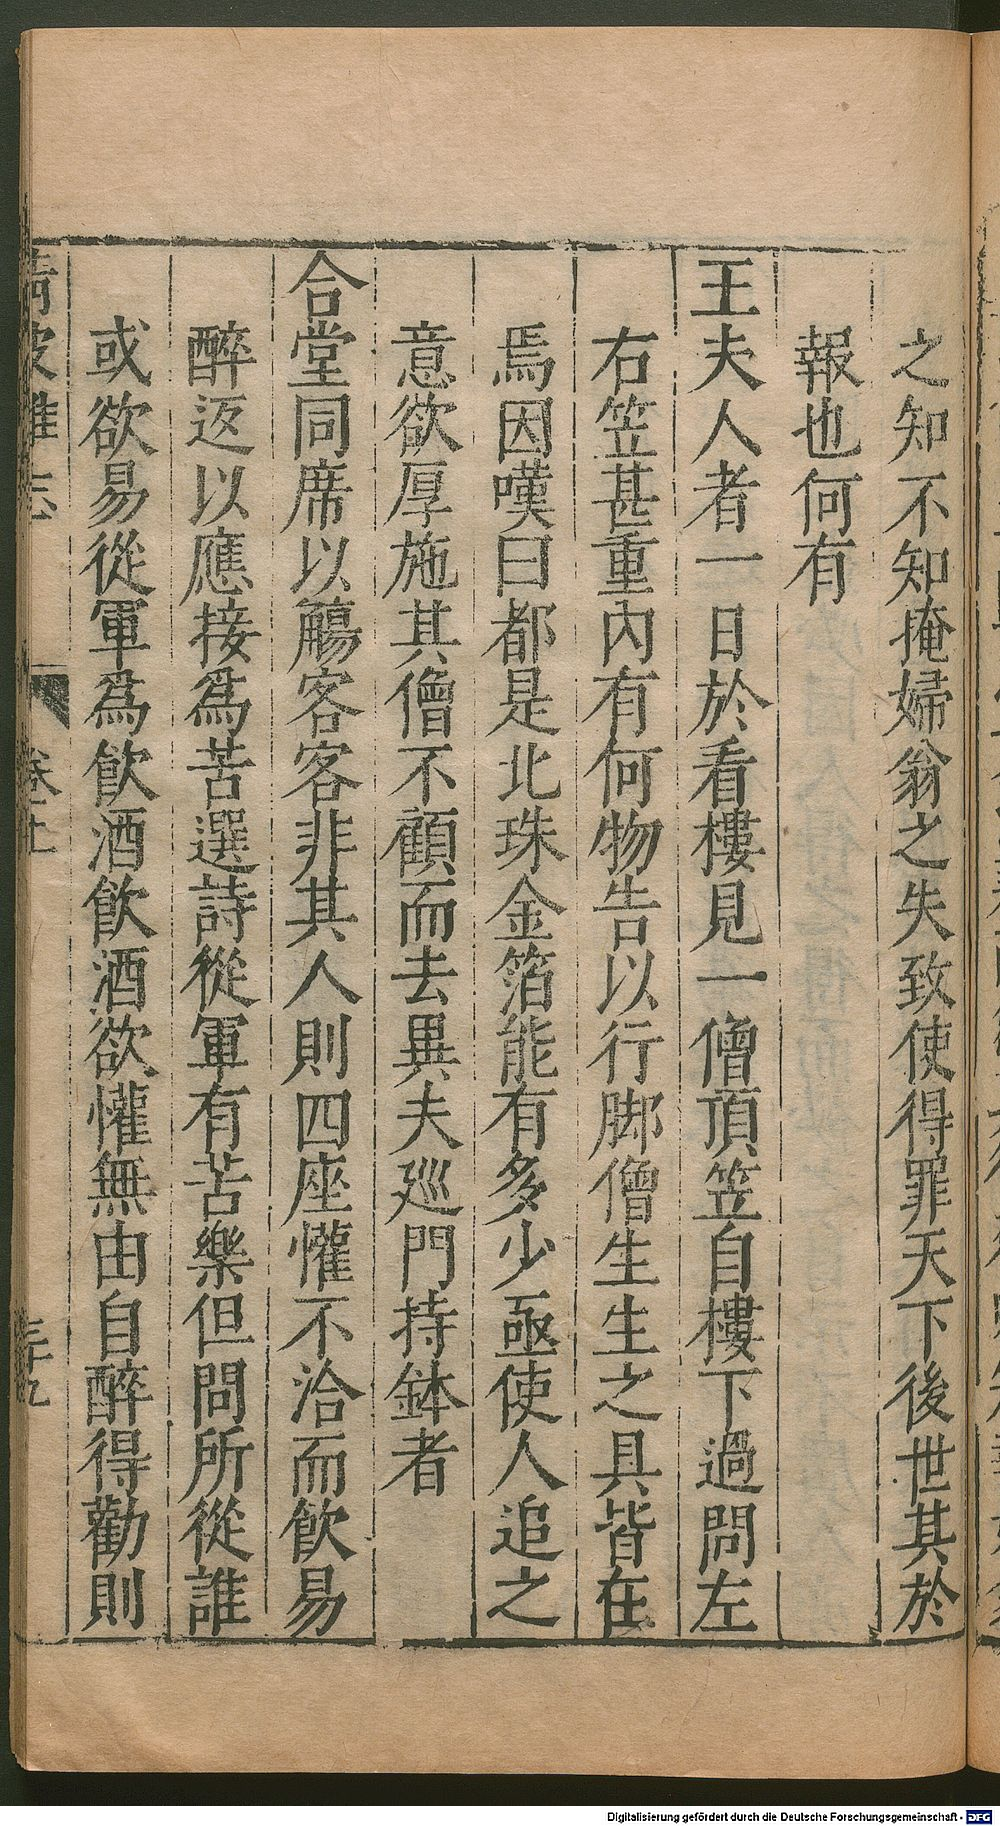 之知不知掩婦翁之失致使得罪天下後世其於
報也何有
王夫人者一日於看樓見一僧頂笠自樓下過問左
右笠甚重內有何物告以行脚僧生生之具皆在
焉因嘆曰都是北珠金箔能有多少亟使人追之
意欲厚施其僧不顧而去異夫廵門持鉢者
合堂同席以觴客客非其人則四座懽不洽而飲易
醉返以應接爲苦選詩從軍有苦樂但問所從誰
或欲易從軍爲飲酒飲酒欲懽無由自醉得勸則
清波雜志 卷十二 三十九
Digitalisierung gefördert durch die Deutsche Forschungsgemeinschaft - DFG